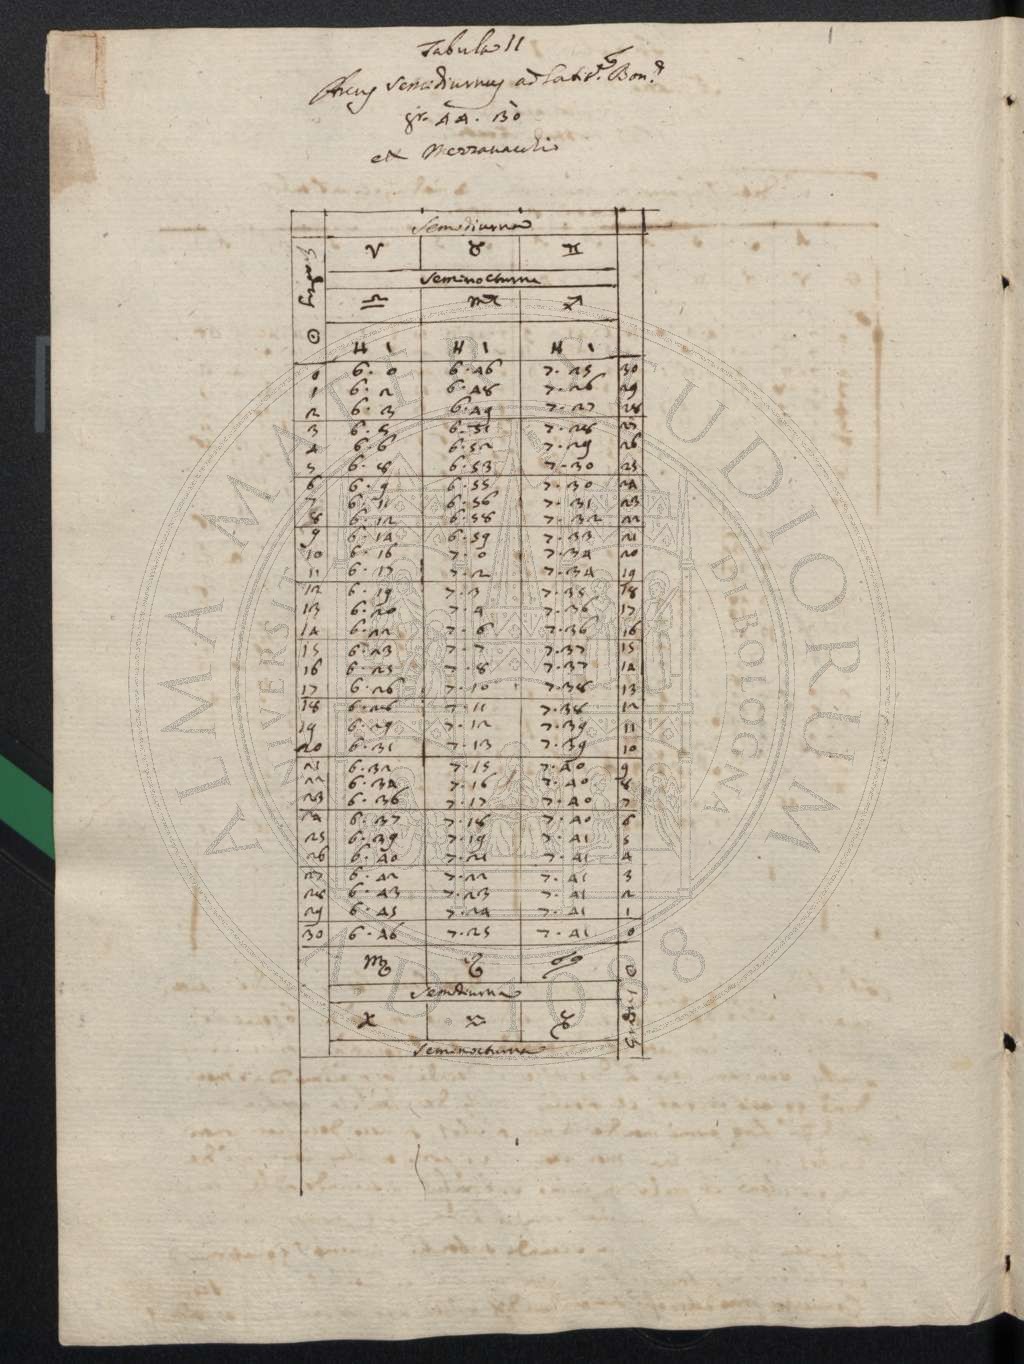 Tabula II
Arcus Semidiurnus ad Latit. Bon.
gr. 44. 30
et
Semidiurna
♈ ♉ ♊
Seminocturna
♎ ♏ ♐
Gradus ☉ H I H I H I
0 6. 0 6. 46 7. 25 30
1 6. 2 6. 48 7. 26 29
2 6. 3 6. 49 7. 27 28
3 6. 5 6. 51 7. 28 27
4 6. 6 6. 52 7. 29 26
5 6. 8 6. 53 7. 30 25
6 6. 9 6. 55 7. 30 24
7 6. 11 6. 56 7. 31 23
8 6. 12 6. 58 7. 32 22
9 6. 14 6. 59 7. 33 21
10 6. 16 7. 0 7. 34 20
11 6. 17 7. 2 7. 34 19
12 6. 19 7. 3 7. 35 18
13 6. 20 7. 4 7. 36 17
14 6. 22 7. 6 7. 36 16
15 6. 23 7. 7 7. 37 15
16 6. 25 7. 8 7. 37 14
17 6. 26 7. 10 7. 38 13
18 6. 28 7. 11 7. 38 12
19 6. 29 7. 12 7. 39 11
20 6. 31 7. 13 7. 39 10
21 6. 32 7. 15 7. 40 9
22 6. 34 7. 16 7. 40 8
23 6. 36 7. 17 7. 40 7
24 6. 37 7. 18 7. 40 6
25 6. 39 7. 19 7. 41 5
26 6. 40 7. 21 7. 41 4
27 6. 42 7. 22 7. 41 3
28 6. 43 7. 23 7. 41 2
29 6. 45 7. 24 7. 41 1
30 6. 46 7. 25 7. 41 0
♍ ♌ ♋
Semidiurna
♓ ♒ ♑ Gradus ☉
Seminocturna
ALMA MATER STUDIORUM
UNIVERSITÀ DI BOLOGNA
A.D. 1088